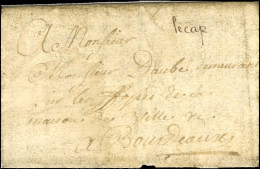 lecap
A Monsieur
Monsieur Daube demeurant
sur les fossés de la
maison de Ville
a Bourdeaux